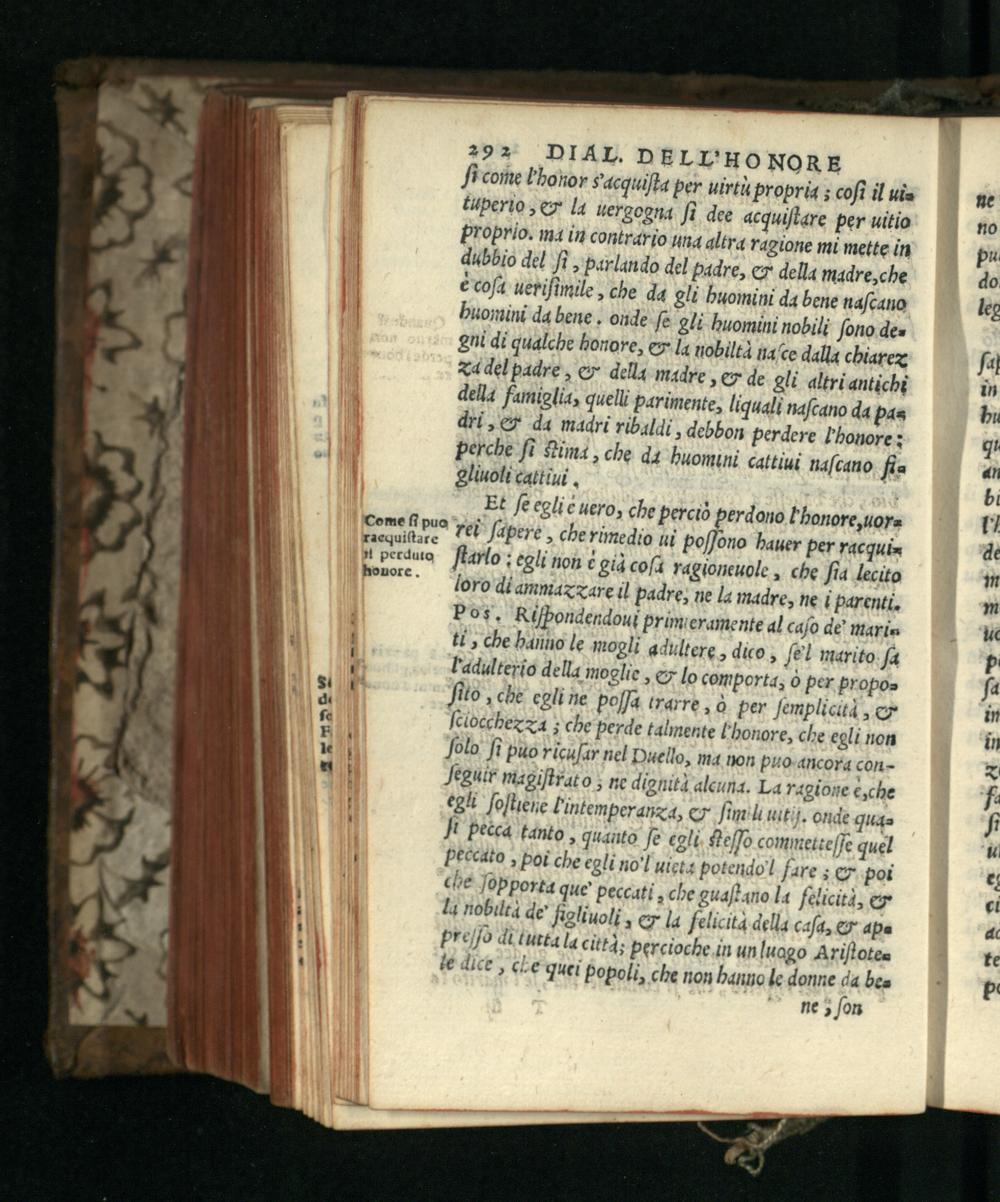 292 DIAL. DELL'HONORE
ſi come l'honor s'acquiſta per uirtù propria; coſi il ui-
tuperio, & la uergogna ſi dee acquiſtare per uitio
proprio. ma in contrario una altra ragione mi mette in
dubbio del ſi, parlando del padre, & della madre, che
è coſa ueriſimile, che da gli huomini da bene naſcano
huomini da bene. onde ſe gli huomini nobili ſono de-
gni di qualche honore, & la nobiltà naſce dalla chiarez
za del padre, & della madre, & de gli altri antichi
della famiglia, quelli parimente, liquali naſcano da pa-
dri, & da madri ribaldi, debbon perdere l'honore;
perche ſi ſtima, che da huomini cattiui naſcano fi-
gliuoli cattiui.
Et ſe egli è uero, che perciò perdono l'honore, uor-
rei ſapere, che rimedio ui poſſono hauer per racqui-
ſtarlo: egli non è già coſa ragioneuole, che ſia lecito
loro di ammazzare il padre, ne la madre, ne i parenti.
Come ſi puo
racquiſtare
il perduto
honore.
Pos. Riſpondendoui primieramente al caſo de' mari-
ti, che hanno le mogli adultere, dico, ſe'l marito ſa
l'adulterio della moglie, & lo comporta, ò per propo-
ſito, che egli ne poſſa trarre, ò per ſemplicità, &
ſciocchezza; che perde talmente l'honore, che egli non
ſolo ſi puo ricuſar nel Duello, ma non puo ancora con-
ſeguir magiſtrato, ne dignità alcuna. La ragione è, che
egli ſoſtiene l'intemperanza, & ſimili uitij. onde qua-
ſi pecca tanto, quanto ſe egli ſteſſo commetteſſe quel
peccato, poi che egli no'l uieta potendo'l fare; & poi
che ſopporta que' peccati, che guaſtano la felicità, &
la nobiltà de' figliuoli, & la felicità della caſa, & ap-
preſſo di tutta la città; percioche in un luogo Ariſtote-
le dice, che quei popoli, che non hanno le donne da be-
ne, ſon